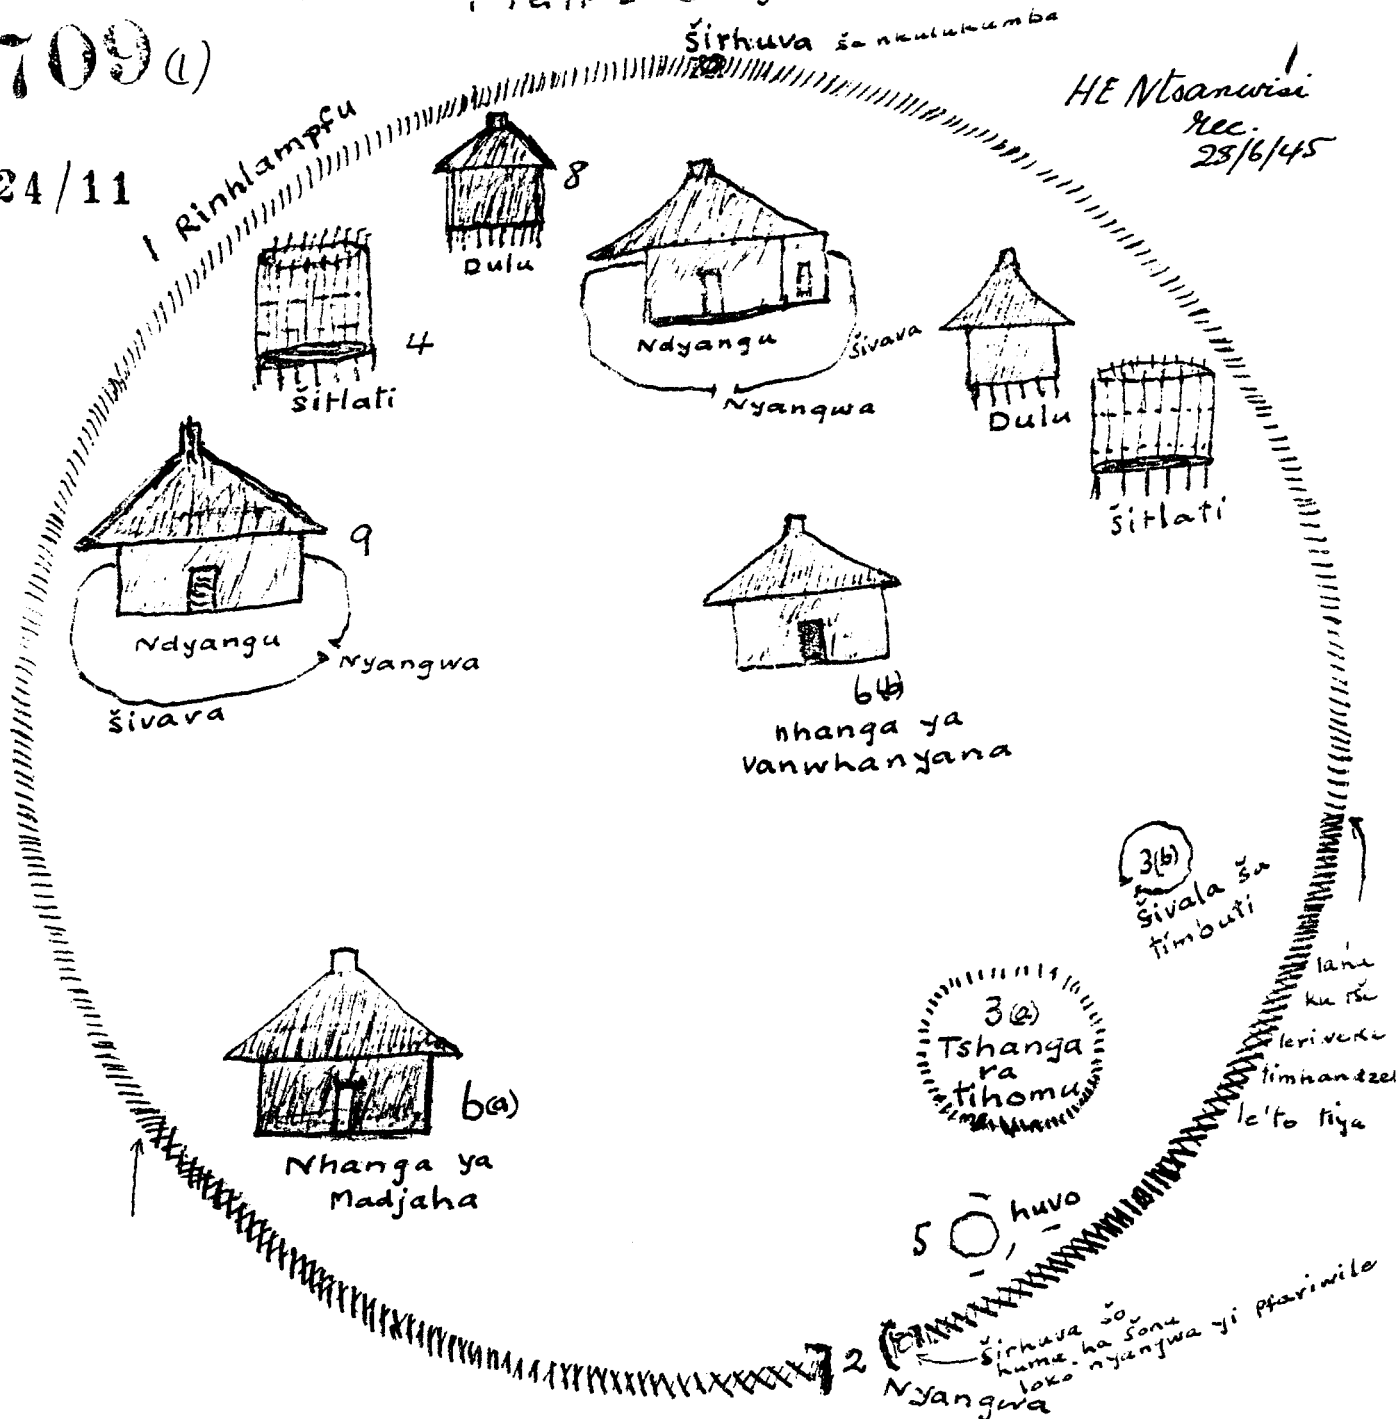 709 (1)
širhuva ša nkulukumba
HE Ntsanwisi
rec.
28/6/45
24/11
1 Rinhlampfu
8
Dulu
4
šitlati
Ndyangu
šivava
Nyangwa
Dulu
šitlati
9
Ndyangu
Nyangwa
šivava
6(b)
nhanga ya
vanwhanyana
3(b)
šivala ša
timbuti
3(a)
Tshanga
ra
tihomu
lani
ku
leri veke
le'to tiya
6(a)
Nhanga ya
Madjaha
5 huvo
2
Nyangwa
širhuva šo
huma ha šona
loko nyangwa yi pfariwile